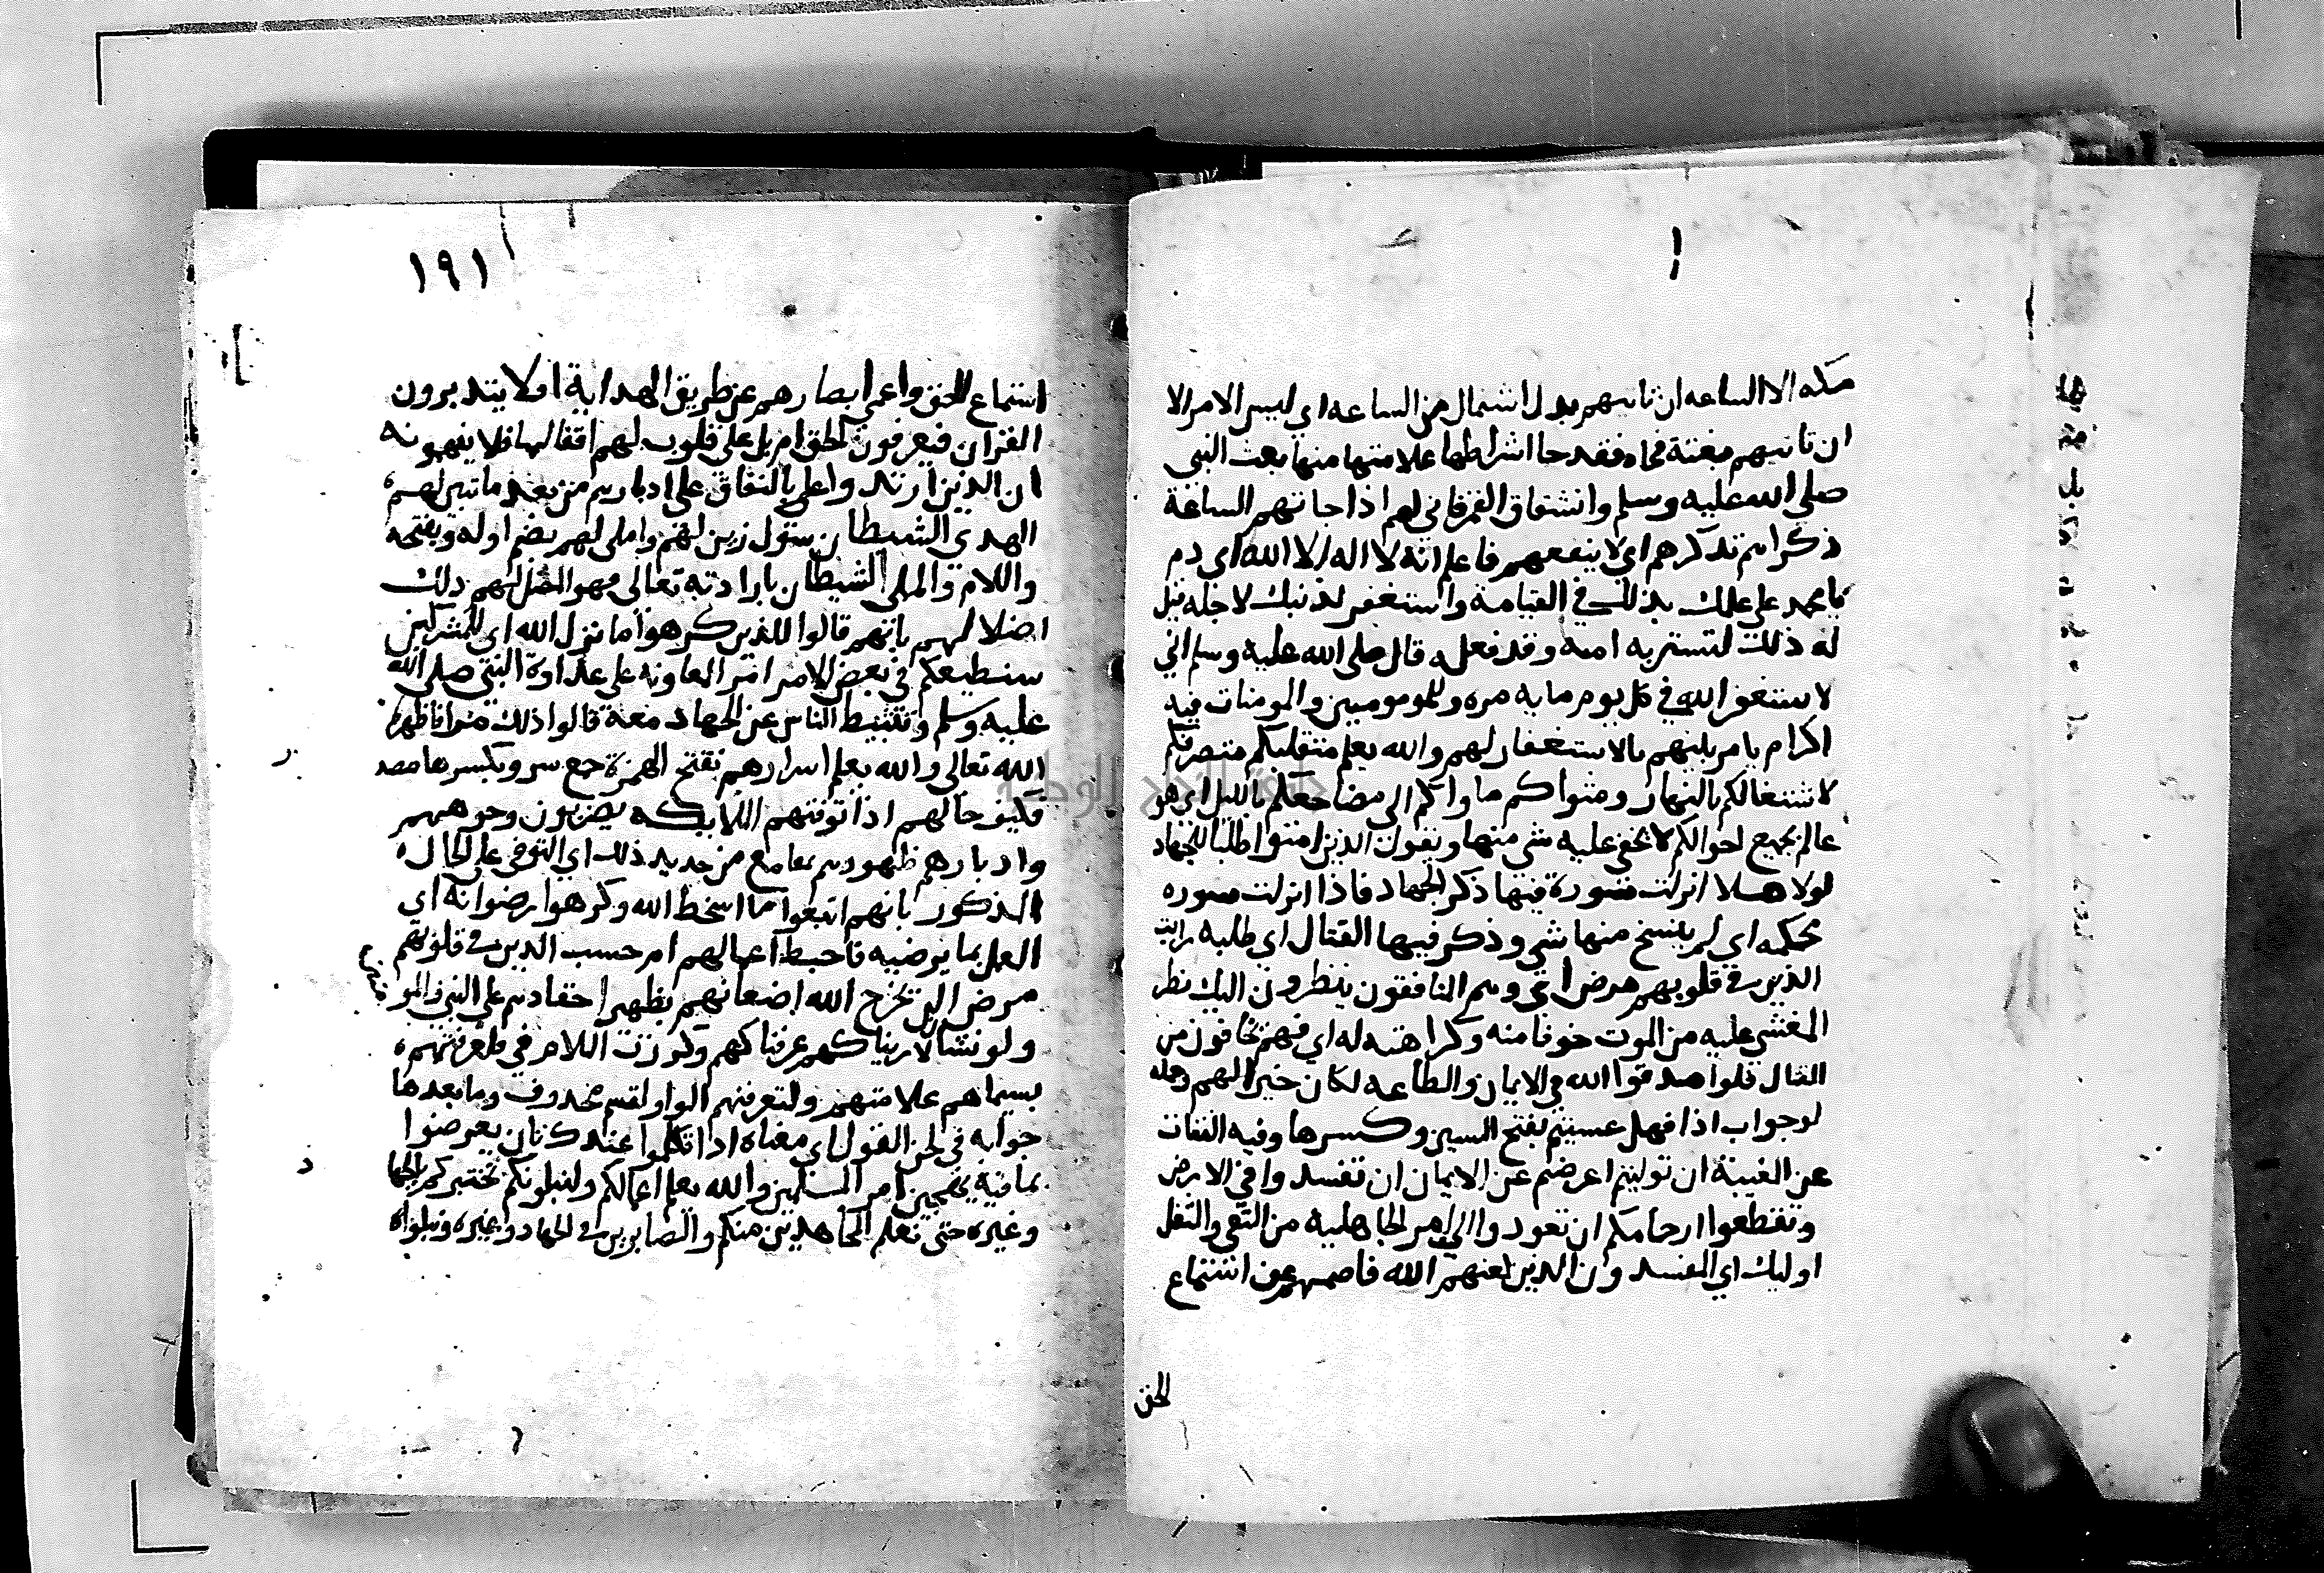 مكه الا الساعه ان تاتيهم بدل اشتمال من الساعه اي ليس الامر الا
ان تاتيهم بغتة فجاه فقد جا اشراطها علاماتها منها بعث النبي
صلى الله عليه وسلم وانشقاق القمر فاني لهم اذا جاتهم الساعة
ذكراهم تذكرهم اي لا ينفعهم فاعلم انه لا اله الا الله اي دم
يا محمد على علمك بذلك في القيامة واستغفر لذنبك لاجله قيل
له ذلك لتستن به امته وقد فعله قال صلى الله عليه وسلم اني
لاستغفر الله في كل يوم مايه مره وللمومنين والمومنات فيه
اكرام يامر بلنهم بالاستغفار لهم والله يعلم متقلبكم منصرفكم
لاشتغالكم بالنهار ومثواكم ماواكم الى مضاجعكم بالليل اي هو
عالم بجميع احوالكم لا يخفى عليه شي منها ويقول الذين امنوا طلبا للجهاد
لولا هلا انزلت سورة فيها ذكر الجهاد فاذا انزلت سوره
محكمه اي لم ينسخ منها شي وذكر فيها القتال اي طلبه رايت
الذين في قلوبهم مرض اي وهم المنافقون ينظرون اليك نظر
المغشي عليه من الموت خوفا منه وكراهته له اي فهم يخافون من
القتال فلو صدقوا الله في الايمان والطاعه لكان خيرا لهم وجمله
لو جواب اذا فهل عسيتم بفتح السين وكسرها وفيه التفات
عن الغيبة ان توليتم اعرضتم عن الايمان ان تفسدوا في الارض
وتقطعوا ارحامكم ان تعودوا الى امر الجاهليه من البغي والقتل
اوليك اي المفسدون الذين لعنهم الله فاصمهم عن استماع
الحق
١٩١
استماع الحق واعمى ابصارهم عن طريق الهداية افلا يتدبرون
القران فيعرفون الحق ام بل على قلوب لهم اقفالها فلا يفهمونه
ان الذين ارتدوا على بالنفاق على ادبارهم من بعد ما تبين لهم
الهدى الشيطان سول زين لهم واملى لهم بضم اوله وبفتحه
واللام والمملي الشيطان بارادته تعالى فهو المضل لهم ذلك
اضلالهم بانهم قالوا للذين كرهوا ما نزل الله اي للمشركين
سنطيعكم في بعض الامر امر المعاونه على عداوة النبي صلى الله
عليه وسلم وتثبيط الناس عن الجهاد معه قالوا ذلك سرا فاظهره
الله تعالى والله يعلم اسرارهم بفتح الهمزة جمع سر وبكسرها مصد
فكيف حالهم اذا توفتهم الملايكه يضربون وجوههم
وادبارهم ظهورهم بمقامع من حديد ذلك اي التوفي على الحال
المذكور بانهم اتبعوا ما اسخط الله وكرهوا رضوانه اي
العمل بما يرضيه فاحبط اعمالهم ام حسب الذين في قلوبهم
مرض ان لن يخرج الله اضغانهم يظهر احقادهم على النبي والمو
ولو نشا لاريناكهم عرفناكهم وكررت اللام في فلعرفتهم
بسيماهم علامتهم ولتعرفنهم الواو لقسم محذوف وما بعدها
جوابه في لحن القول اي معناه اذا تكلموا عندك بان يعرضوا
بما فيه تهجين امر المسلمين والله يعلم اعمالكم ولنبلونكم نختبركم بالجها
وغيره حتى نعلم المجاهدين منكم والصابرين في الجهاد وغيره ونبلو